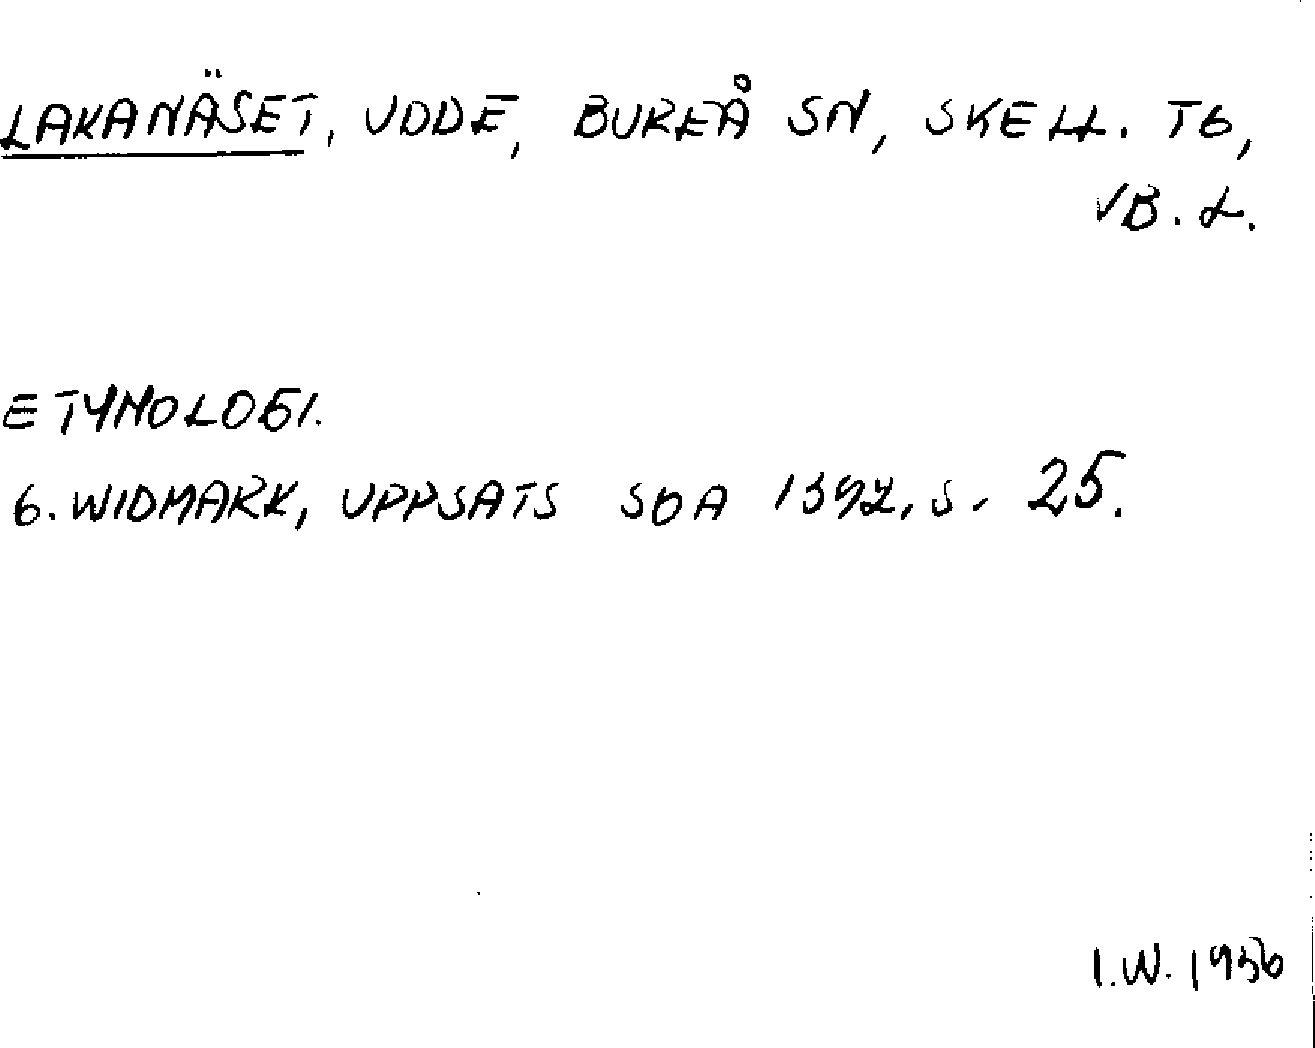 LAKANÄSET, UDDE, BUREÅ SN, SKELL. TG,
VB. L.
ETYMOLOGI.
G. WIDMARK, UPPSATS SOA 1392, S. 25.
I.W. 1956